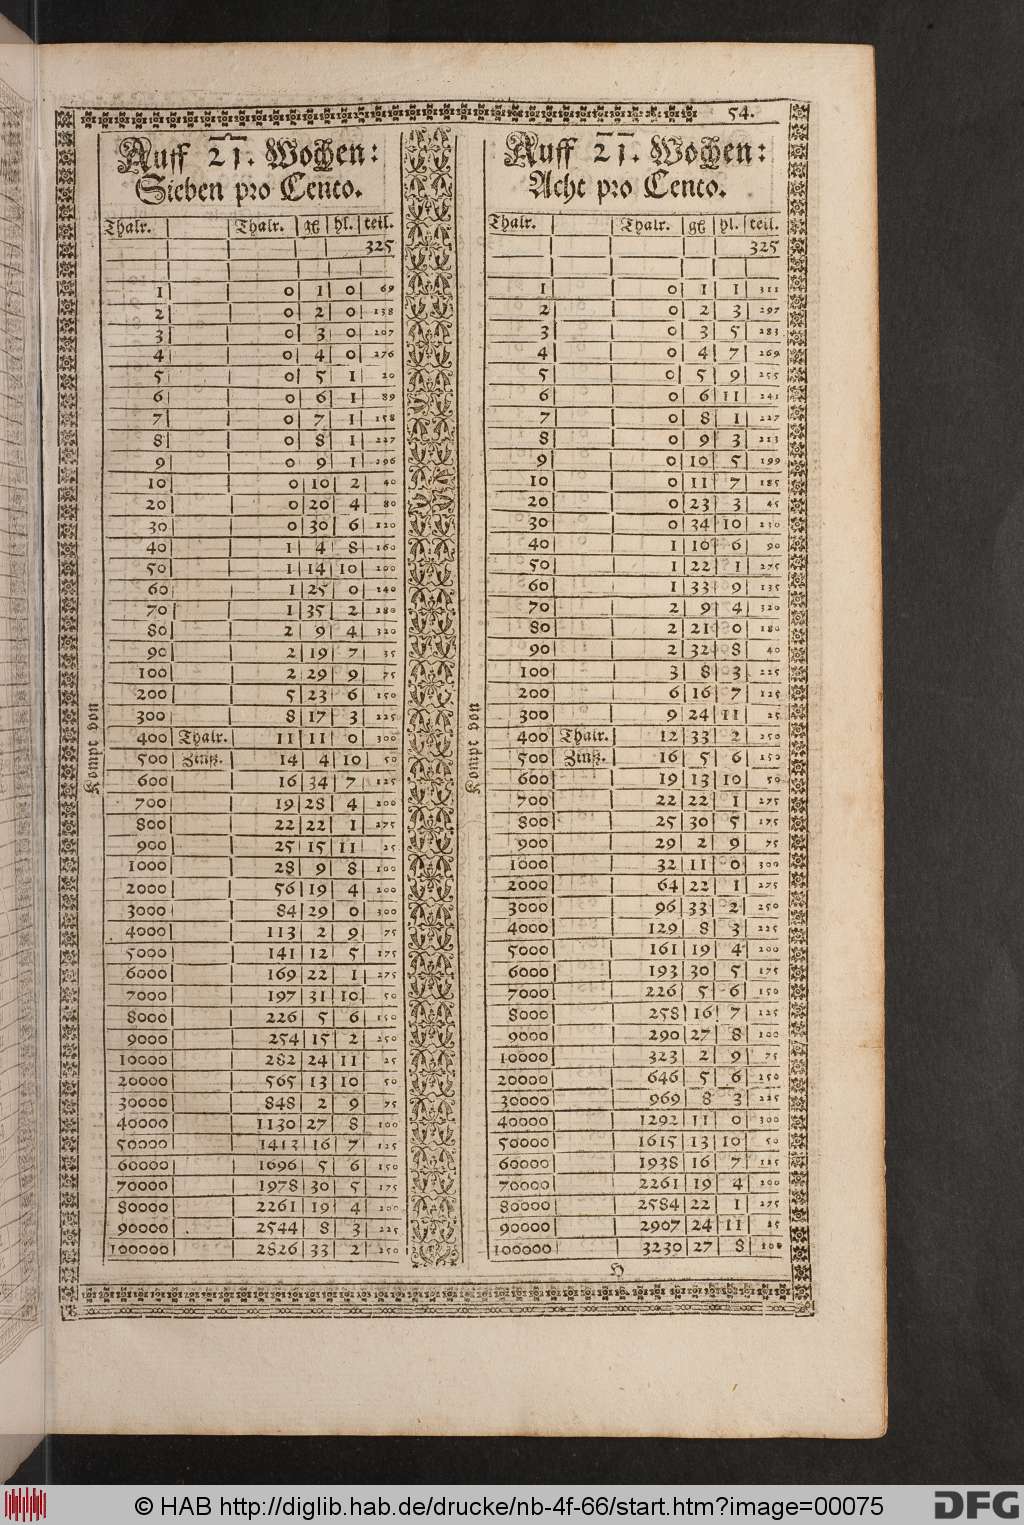 54.
Auff 21. Wochen:
Sieben pro Cento.
Thalr. Thalr. gß hl. teil.
325
1 0 1 0 69
2 0 2 0 138
3 0 3 0 207
4 0 4 0 276
5 0 5 1 20
6 0 6 1 89
7 0 7 1 158
8 0 8 1 227
9 0 9 1 296
10 0 10 2 40
20 0 20 4 80
30 0 30 6 120
40 1 4 8 160
50 1 14 10 200
60 1 25 0 240
70 1 35 2 280
80 2 9 4 320
90 2 19 7 35
100 2 29 9 75
200 5 23 6 150
300 8 17 3 225
400 Thalr. 11 11 0 300
500 Zinß. 14 4 10 50
600 16 34 7 125
700 19 28 4 200
800 22 22 1 275
900 25 15 11 25
1000 28 9 8 100
2000 56 19 4 200
3000 84 29 0 300
4000 113 2 9 75
5000 141 12 5 175
6000 169 22 1 275
7000 197 31 10 50
8000 226 5 6 150
9000 254 15 2 250
10000 282 24 11 25
20000 565 13 10 50
30000 848 2 9 75
40000 1130 27 8 100
50000 1413 16 7 125
60000 1696 5 6 150
70000 1978 30 5 175
80000 2261 19 4 200
90000 2544 8 3 225
100000 2826 33 2 250
Kompt von
Auff 21. Wochen:
Acht pro Cento.
Thalr. Thalr. gß hl. teil.
325
1 0 1 1 311
2 0 2 3 297
3 0 3 5 283
4 0 4 7 269
5 0 5 9 255
6 0 6 11 241
7 0 8 1 227
8 0 9 3 213
9 0 10 5 199
10 0 11 7 185
20 0 23 3 45
30 0 34 10 230
40 1 10 6 90
50 1 22 1 275
60 1 33 9 135
70 2 9 4 320
80 2 21 0 180
90 2 32 8 40
100 3 8 3 225
200 6 16 7 125
300 9 24 11 25
400 Thalr. 12 33 2 250
500 Zinß. 16 5 6 150
600 19 13 10 50
700 22 22 1 275
800 25 30 5 175
900 29 2 9 75
1000 32 11 0 300
2000 64 22 1 275
3000 96 33 2 250
4000 129 8 3 225
5000 161 19 4 200
6000 193 30 5 175
7000 226 5 6 150
8000 258 16 7 125
9000 290 27 8 100
10000 323 2 9 75
20000 646 5 6 250
30000 969 8 3 225
40000 1292 11 0 300
50000 1615 13 10 50
60000 1938 16 7 125
70000 2261 19 4 200
80000 2584 22 1 275
90000 2907 24 11 25
100000 3230 27 8 100
Kompt von
H
© HAB http://diglib.hab.de/drucke/nb-4f-66/start.htm?image=00075
DFG